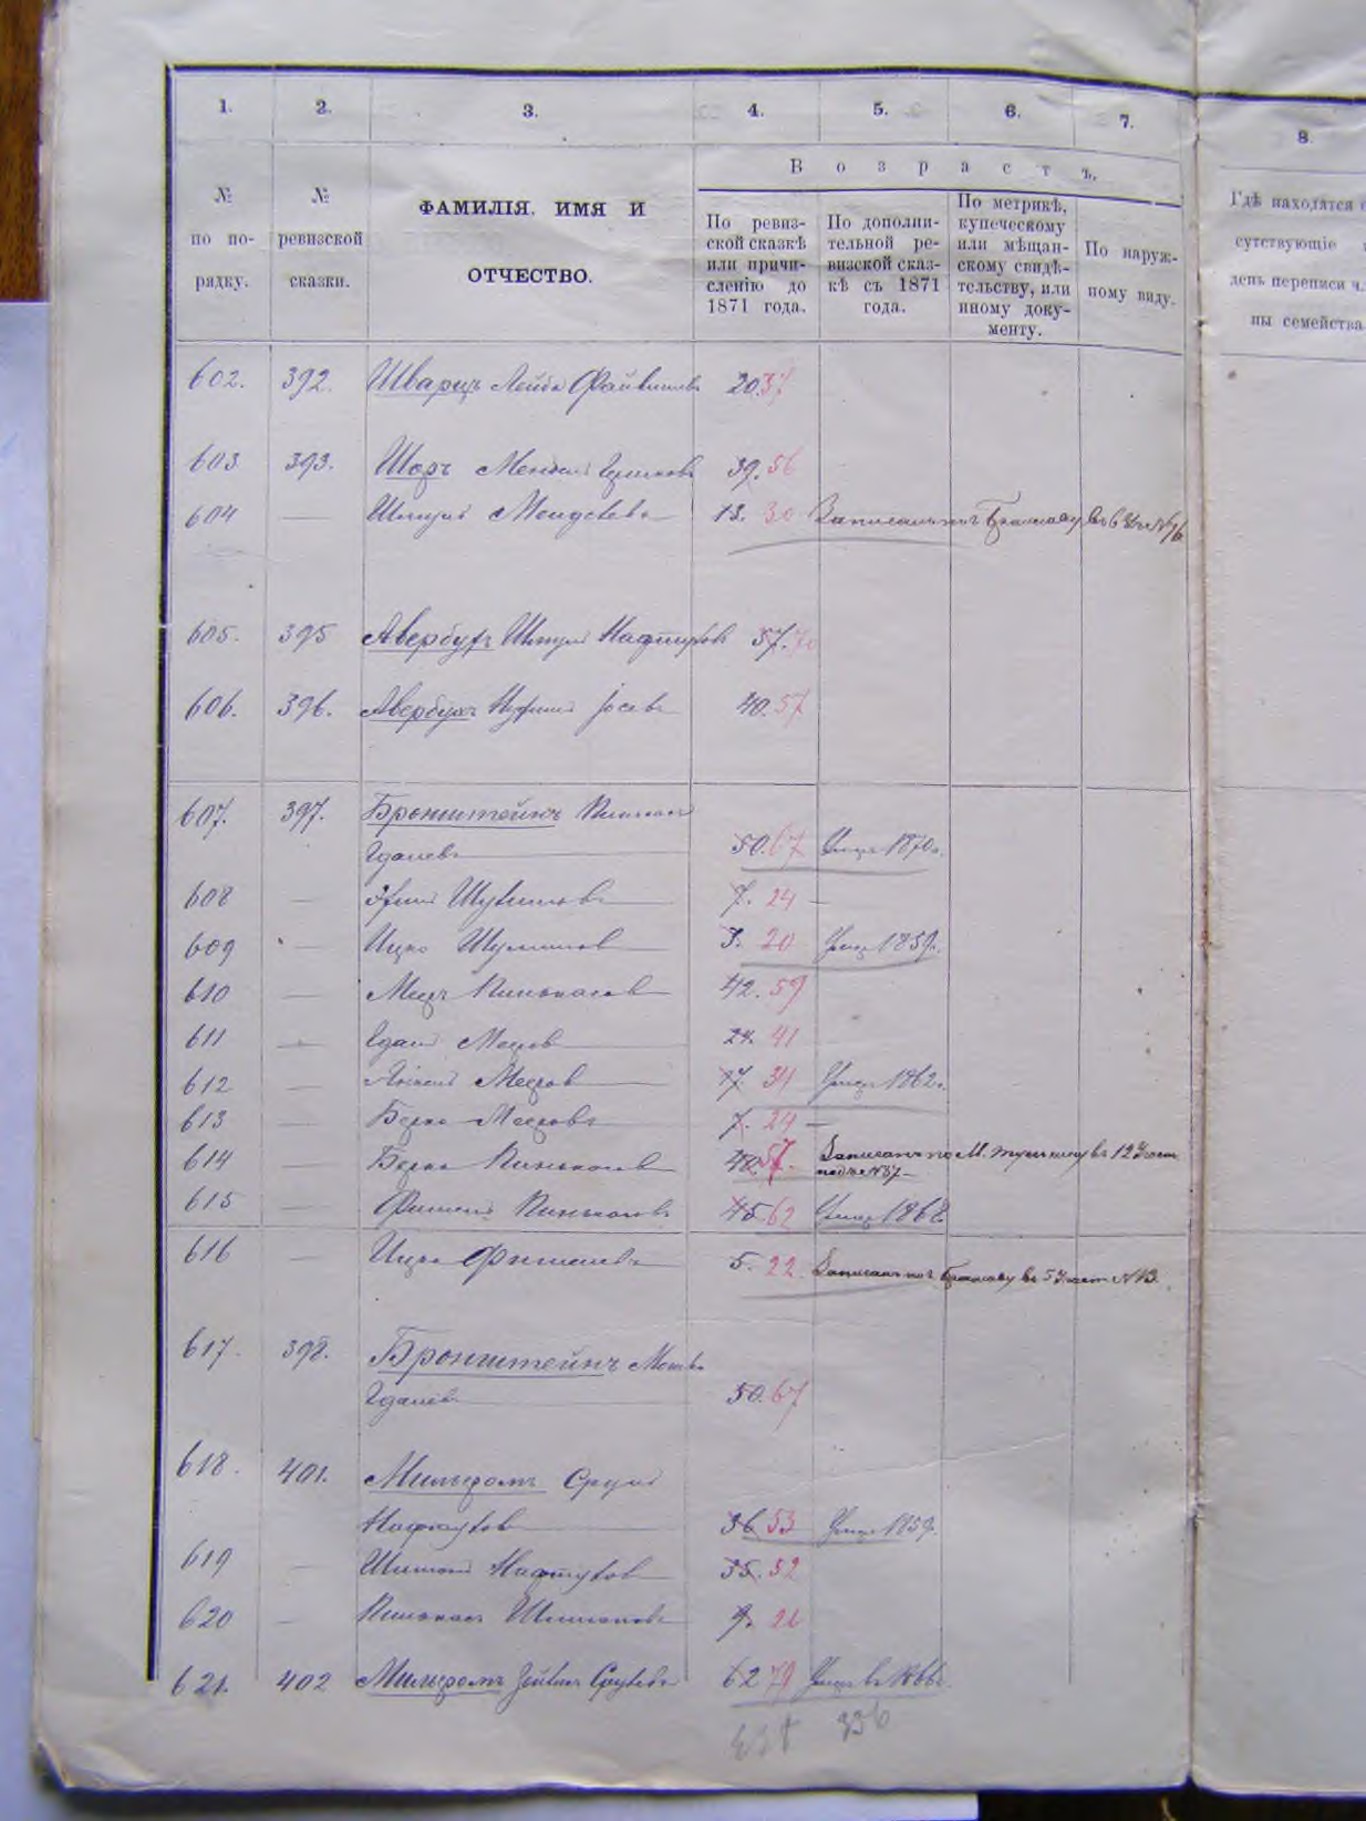 1. 2. 3. 4. 5. 6. 7. 8.
Возрастъ.
№ по порядку.
№ ревизской сказки.
ФАМИЛІЯ. ИМЯ И
ОТЧЕСТВО.
По ревиз-
ской сказкѣ
или причи-
сленію до
1871 года.
По дополни-
тельной ре-
визской сказ-
кѣ съ 1871
года.
По метрикѣ,
купеческому
или мѣщан-
скому свидѣ-
тельству, или
иному доку-
менту.
По наруж-
ному виду.
Гдѣ находятся
сутствующіе
день переписи
ны семейства
602. 392. Шварцъ Лейба Файвишовъ 20. 37
603 393. Шоръ Мендель 39. 56
604 — Шмуль 13. 30 Записанъ по Браилову въ 6 №76
605. 395 Авербухъ Шмуль Нафтуловъ 57.
606. 396. Авербухъ Іосевъ 40. 57
607. 397. Бронштейнъ Пинкасъ
Гдалевъ 50. 67 Умеръ 1870г.
608 — 7. 24 —
609 — Ицко 3. 20 Умеръ 1859г.
610 — Мееръ Пинькасовъ 42. 59
611 — Гдаль Мееровъ 24. 41
612 — Мееровъ 17. 34 Умеръ 1862г.
613 — Берко Мееровъ 7. 24 —
614 — Берко Пинькасовъ 40. 57. Записанъ по М. въ 12 Участ
подъ №57
615 — Фишель Пинькасовъ 45. 62 Умеръ 1868
616 — Ицко Фишелевъ 5. 22. Записанъ по Браилову въ 5 Участ №13.
617. 398. Бронштейнъ
Гдалевъ 50. 67
618. 401. Мильгромъ Сруль
Нафтуловъ 36 53 Умеръ 1859г.
619 — Шимонъ Нафтуловъ 35. 52
620 — Пинькасъ Шимоновъ 9. 26
621. 402 Мильгромъ Срулевъ 62 79 Умеръ въ 1866
336